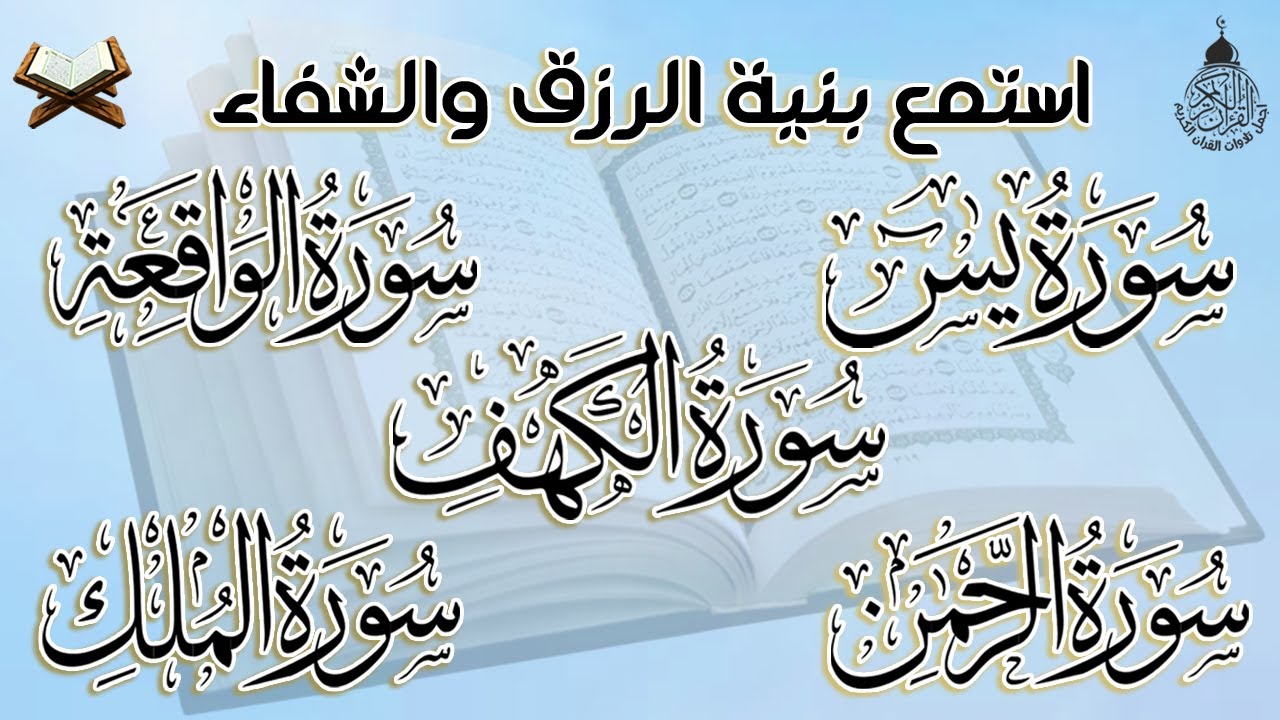 استمع بنية الرزق والشفاء
القرآن الكريم
اجمل تلاوات القران الكريم
سُورَةُ يسٓ
سُورَةُ الوَاقِعَةِ
سُورَةُ الكَهۡفِ
سُورَةُ الرَّحۡمَٰن
سُورَةُ المُلۡكِ